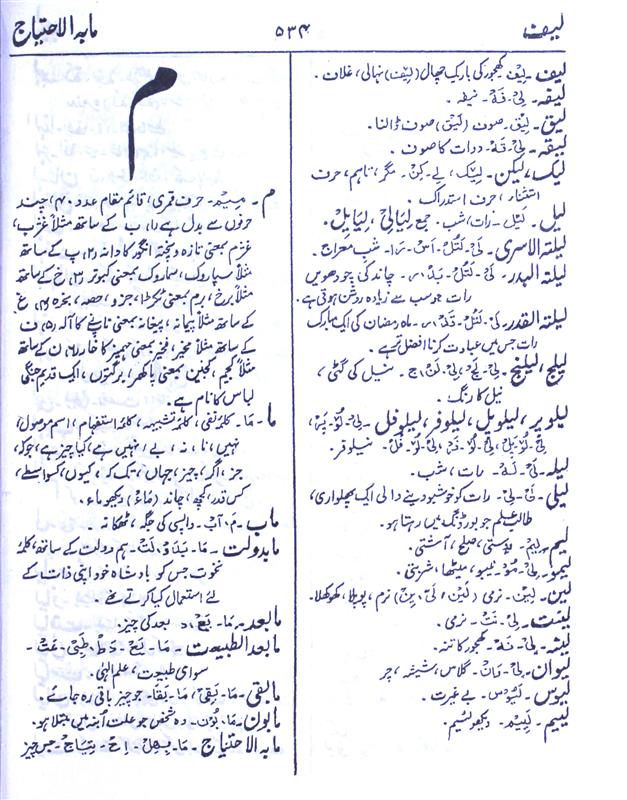 لیف
۵۳۴
مابہ الاحتیاج
لیف - لِیْف کھجور کی باریک چھال (لِیَف) نہالی، غلان.
لیقہ - لِیْ - قَہْ - نیفہ.
لیق - لِیْق - صوف (لَیْق) صوف ڈالنا.
لیقہ - لِیْ - قَہْ - دوات کا صوف.
لیک، لیکن - لِیْک، لے - کِنْ - مگر، تاہم، حرف
استثناء، حرف استدراک.
لیل - لَیْل - رات، شب. جمع لیالی، لیایل.
لیلتہ الاسری - لَیْ - لَتُلْ - اَسْ - رَا - شب معراج.
لیلتہ البدر - لَیْ - لَتُلْ - بَدْر - چاند کی چودھویں
رات جو سب سے زیادہ روشن ہوتی ہے.
لیلتہ القدر - لَیْ - لَتُلْ - قَدْر - ماہ رمضان کی ایک مبارک
رات جس میں عبادت کرنا افضل تر ہے.
لیلج، لیلنج - لِیْ - لَجْ، لِیْ - لَنْج - نیل کی گٹی،
نیل کا رنگ.
لیلوپر، لیلوپل، لیلوفر، لیلوفل - لِیْ - لُوْ - پَرْ،
لِیْ - لُوْ - پَلْ، لِیْ - لُوْ - فَرْ، لِیْ - لُوْ - فَلْ - نیلوفر.
لیلہ - لَیْ - لَہْ - رات، شب.
لیلی - لَیْ - لیٰ - رات کو خوشبو دینے والی ایک پھلواری،
طالب علم جو بورڈنگ میں رہتا ہو.
لیم - لِیْم - دوستی، صلح، آشتی.
لیمو - لِیْ - مُوْ - نیبو، میٹھا، شربتی.
لین - لِیْن - نرمی (لَیْن، لَیْ - یِنْ) نرم، پوپلا، کھوکھلا.
لینت - لِیْ - نَتْ - نرمی.
لینہ - لِیْ - نَہْ - کھجور کا تنہ.
لیوان - لِیْ - وَانْ - گلاس، شیشہ، چر
لیوس - لَیُوْس - بے غیرت.
لییم - لَئِیْم - دیکھو لئیم.
م
م - مِیْم - حرف قمری، قائم مقام عدد ۴۰، چند
حرفوں سے بدل ہے (۱) ب کے ساتھ مثلاً غژب،
غژم بمعنی تازہ و پختہ انگور کا دانہ (۲) پ کے ساتھ
مثلاً سپاروک، سماروک بمعنی کبوتر (۳) خ کے ساتھ
مثلاً برخ، برم بمعنی ٹکڑا، جزو، حصہ، بخرہ (۴) غ
کے ساتھ مثلاً پیمانہ، پیغانہ بمعنی ناپنے کا آلہ (۵) ن
کے ساتھ مثلاً مخیر، فخیر بمعنی مہمیز کا خار (۶) ن کے ساتھ
مثلاً کجیم، کجین بمعنی پاکھر، برگتوں، ایک قدیم جنگی
لباس کا نام ہے.
ما - مَا - کلمہ نفی، کلمہ تشبیہ، کلمہ استفہام، اسم موصول
نہیں، نا، نہ، بے، انہیں ہے، کیا چیز ہے، جو، کہ،
جز، اگر، چیز، جہاں، تک کہ، کیوں، کسواسطے،
کس قدر، کچھ، چاند (مَاءْ) دیکھو ماء.
ماب - مَ، آبْ - واپسی کی جگہ، ٹھکانہ.
مابدولت - مَا - بَدَوْ - لَتْ - ہم دولت کے ساتھ، کلمہ
نخوت جس کو بادشاہ خود اپنی ذات کے
لئے استعمال کیا کرتے تھے.
مابعد - مَا - بَعْ، د بعد کی چیز.
مابعد الطبیعت - مَا - بَعْ - دَطْ - طَبِیْ - عَتْ -
سوای طبیعت، علم الہٰی.
مابقی - مَا - بَقِیْ، مَا - بَقَا - جو چیز باقی رہ جائے.
مابون - مَا - بُوْن - وہ شخص جو علت اُبنہ میں مبتلا ہو.
مابہ الاحتیاج - مَا - بِہِلْ - اِحْ - تِیَاج - جس چیز